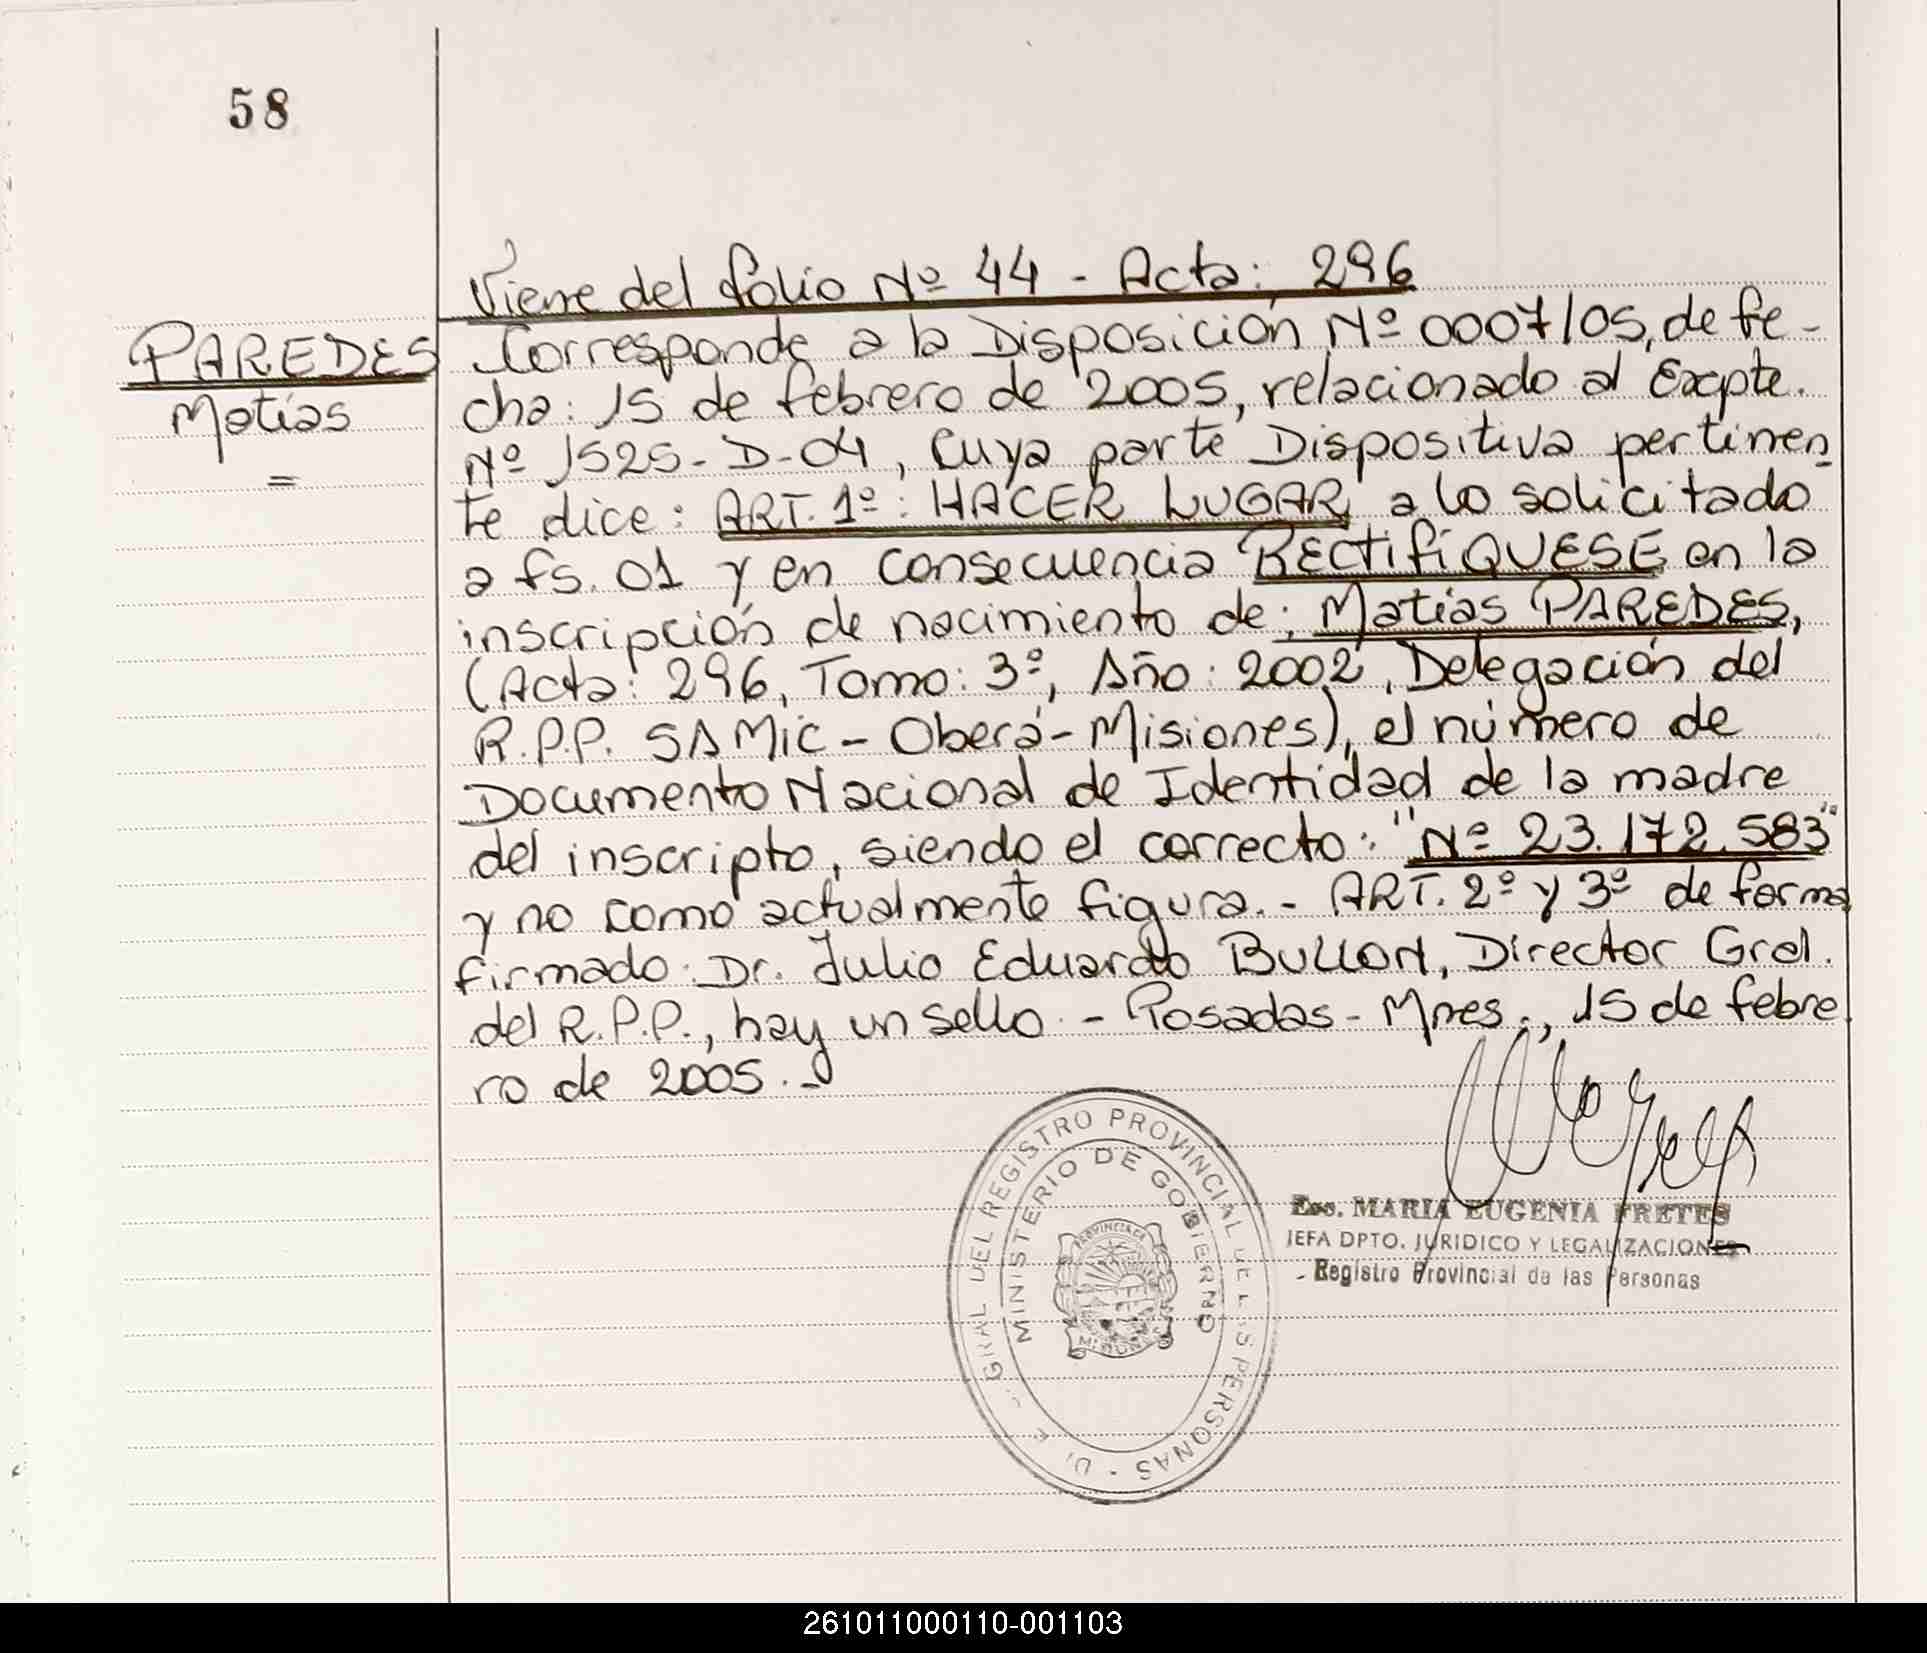 58
Viene del folio Nº 44 - Acta: 296
PAREDES
Matías
=
Corresponde a la Disposición Nº 0007/05, de fe-
cha: 15 de febrero de 2005, relacionado al Expte.
Nº 1525-D-04, Cuya parte Dispositiva pertinen-
te dice: ART. 1º: HACER LUGAR a lo solicitado
a fs. 01 y en consecuencia RECTIFÍQUESE en la
inscripción de nacimiento de: Matías PAREDES,
(Acta: 296, Tomo: 3º, Año: 2002, Delegación del
R.P.P. SAMIC - Oberá - Misiones), el número de
Documento Nacional de Identidad de la madre
del inscripto, siendo el correcto: "Nº 23.172.583"
y no como actualmente figura.- ART. 2º y 3º de forma
firmado: Dr. Julio Eduardo BULLON, Director Gral.
del R.P.P., hay un sello.- Posadas - Mnes., 15 de febre
ro de 2005.-
GRAL DEL REGISTRO PROVINCIAL DE LAS PERSONAS
MINISTERIO DE GOBIERNO
PROVINCIA DE
MISIONES
Esc. MARIA EUGENIA FRETES
JEFA DPTO. JURIDICO Y LEGALIZACIONES
Registro Provincial de las Personas
261011000110-001103